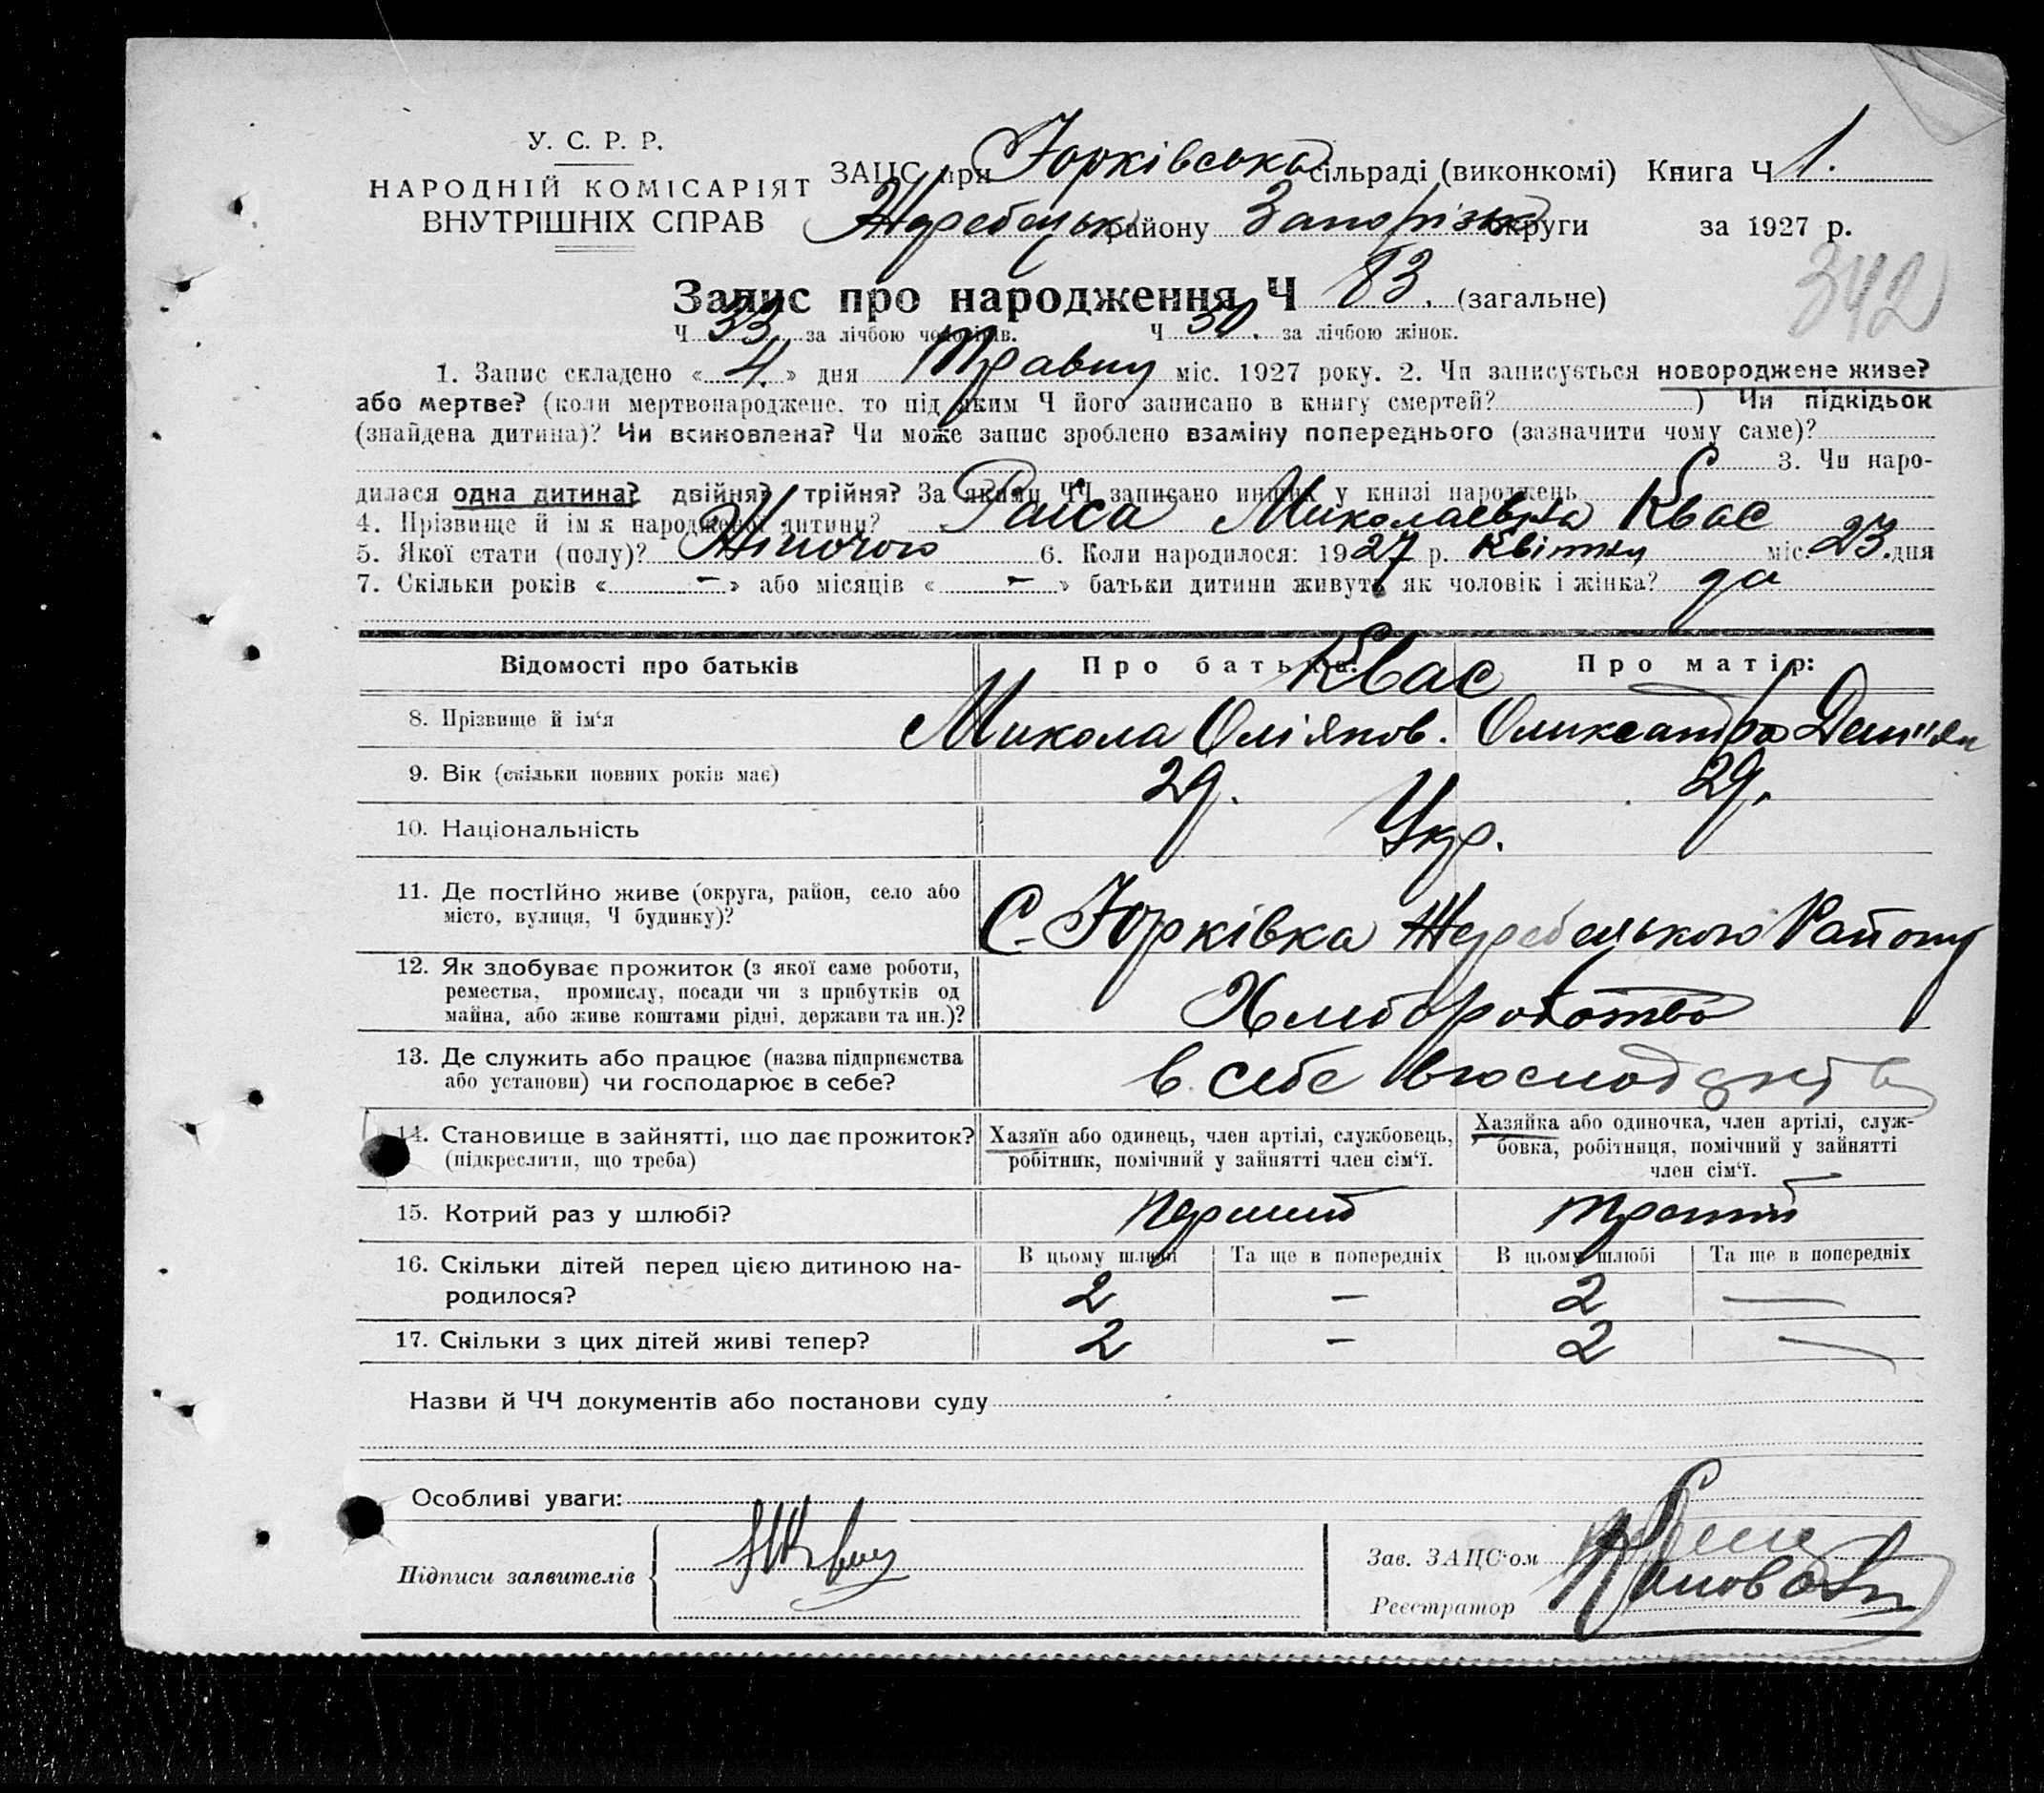 У. С. Р. Р.
НАРОДНІЙ КОМІСАРІЯТ
ВНУТРІШНІХ СПРАВ
ЗАЦС при Юрківська сільраді (виконкомі) Книга Ч 1.
Жеребецьк району Запорізьк округи за 1927 р.
342
Запис про народження Ч 83. (загальне)
Ч 33. за лічбою чоловіків. Ч 50. за лічбою жінок.
1. Запис складено « 4. » дня Травну міс. 1927 року. 2. Чи записується новороджене живе?
або мертве? (коли мертвонароджене, то під яким Ч його записано в книгу смертей? ) Чи підкідьок
(знайдена дитина)? Чи всиновлена? Чи може запис зроблено взаміну попереднього (зазначити чому саме)?
3. Чи наро-
дилася одна дитина? двійня? трійня? За якими ЧЧ записано инших у книзі народжень
4. Прізвище й ім я народженої дитини? Раіса Миколаевна Квас
5. Якої стати (полу)? Жіночою 6. Коли народилося: 1927 р. Квітну міс. 23. дня
7. Скільки років « – » або місяців « – » батьки дитини живуть як чоловік і жінка? да
Відомості про батьків Про батька: Про матір:
Квас
8. Прізвище й ім‘я Микола Оміянов. Олександра Дем"ян
9. Вік (скільки повних років має) 29. 29.
10. Національність Укр.
11. Де постійно живе (округа, район, село або
місто, вулиця, Ч будинку)? С. Юрківка Жеребецького Району
12. Як здобуває прожиток (з якої саме роботи,
ремества, промислу, посади чи з прибутків од
майна, або живе коштами рідні, держави та ин.)? Хлиборобство
13. Де служить або працює (назва підприємства
або установи) чи господарює в себе? в себе
14. Становище в зайнятті, що дає прожиток?
(підкреслити, що треба)
Хазяїн або одинець, член артілі, службовець,
робітник, помічний у зайнятті член сім‘ї.
Хазяйка або одиночка, член артілі, служ-
бовка, робітниця, помічний у зайнятті
член сім‘ї.
15. Котрий раз у шлюбі? перший третій
В цьому шлюбі Та ще в попередніх В цьому шлюбі Та ще в попередніх
16. Скільки дітей перед цією дитиною на-
родилося? 2 – 2 —
17. Скільки з цих дітей живі тепер? 2 – 2 —
Назви й ЧЧ документів або постанови суду
Особливі уваги:
Підписи заявителів
Зав. ЗАЦС‘ом
Реєстратор